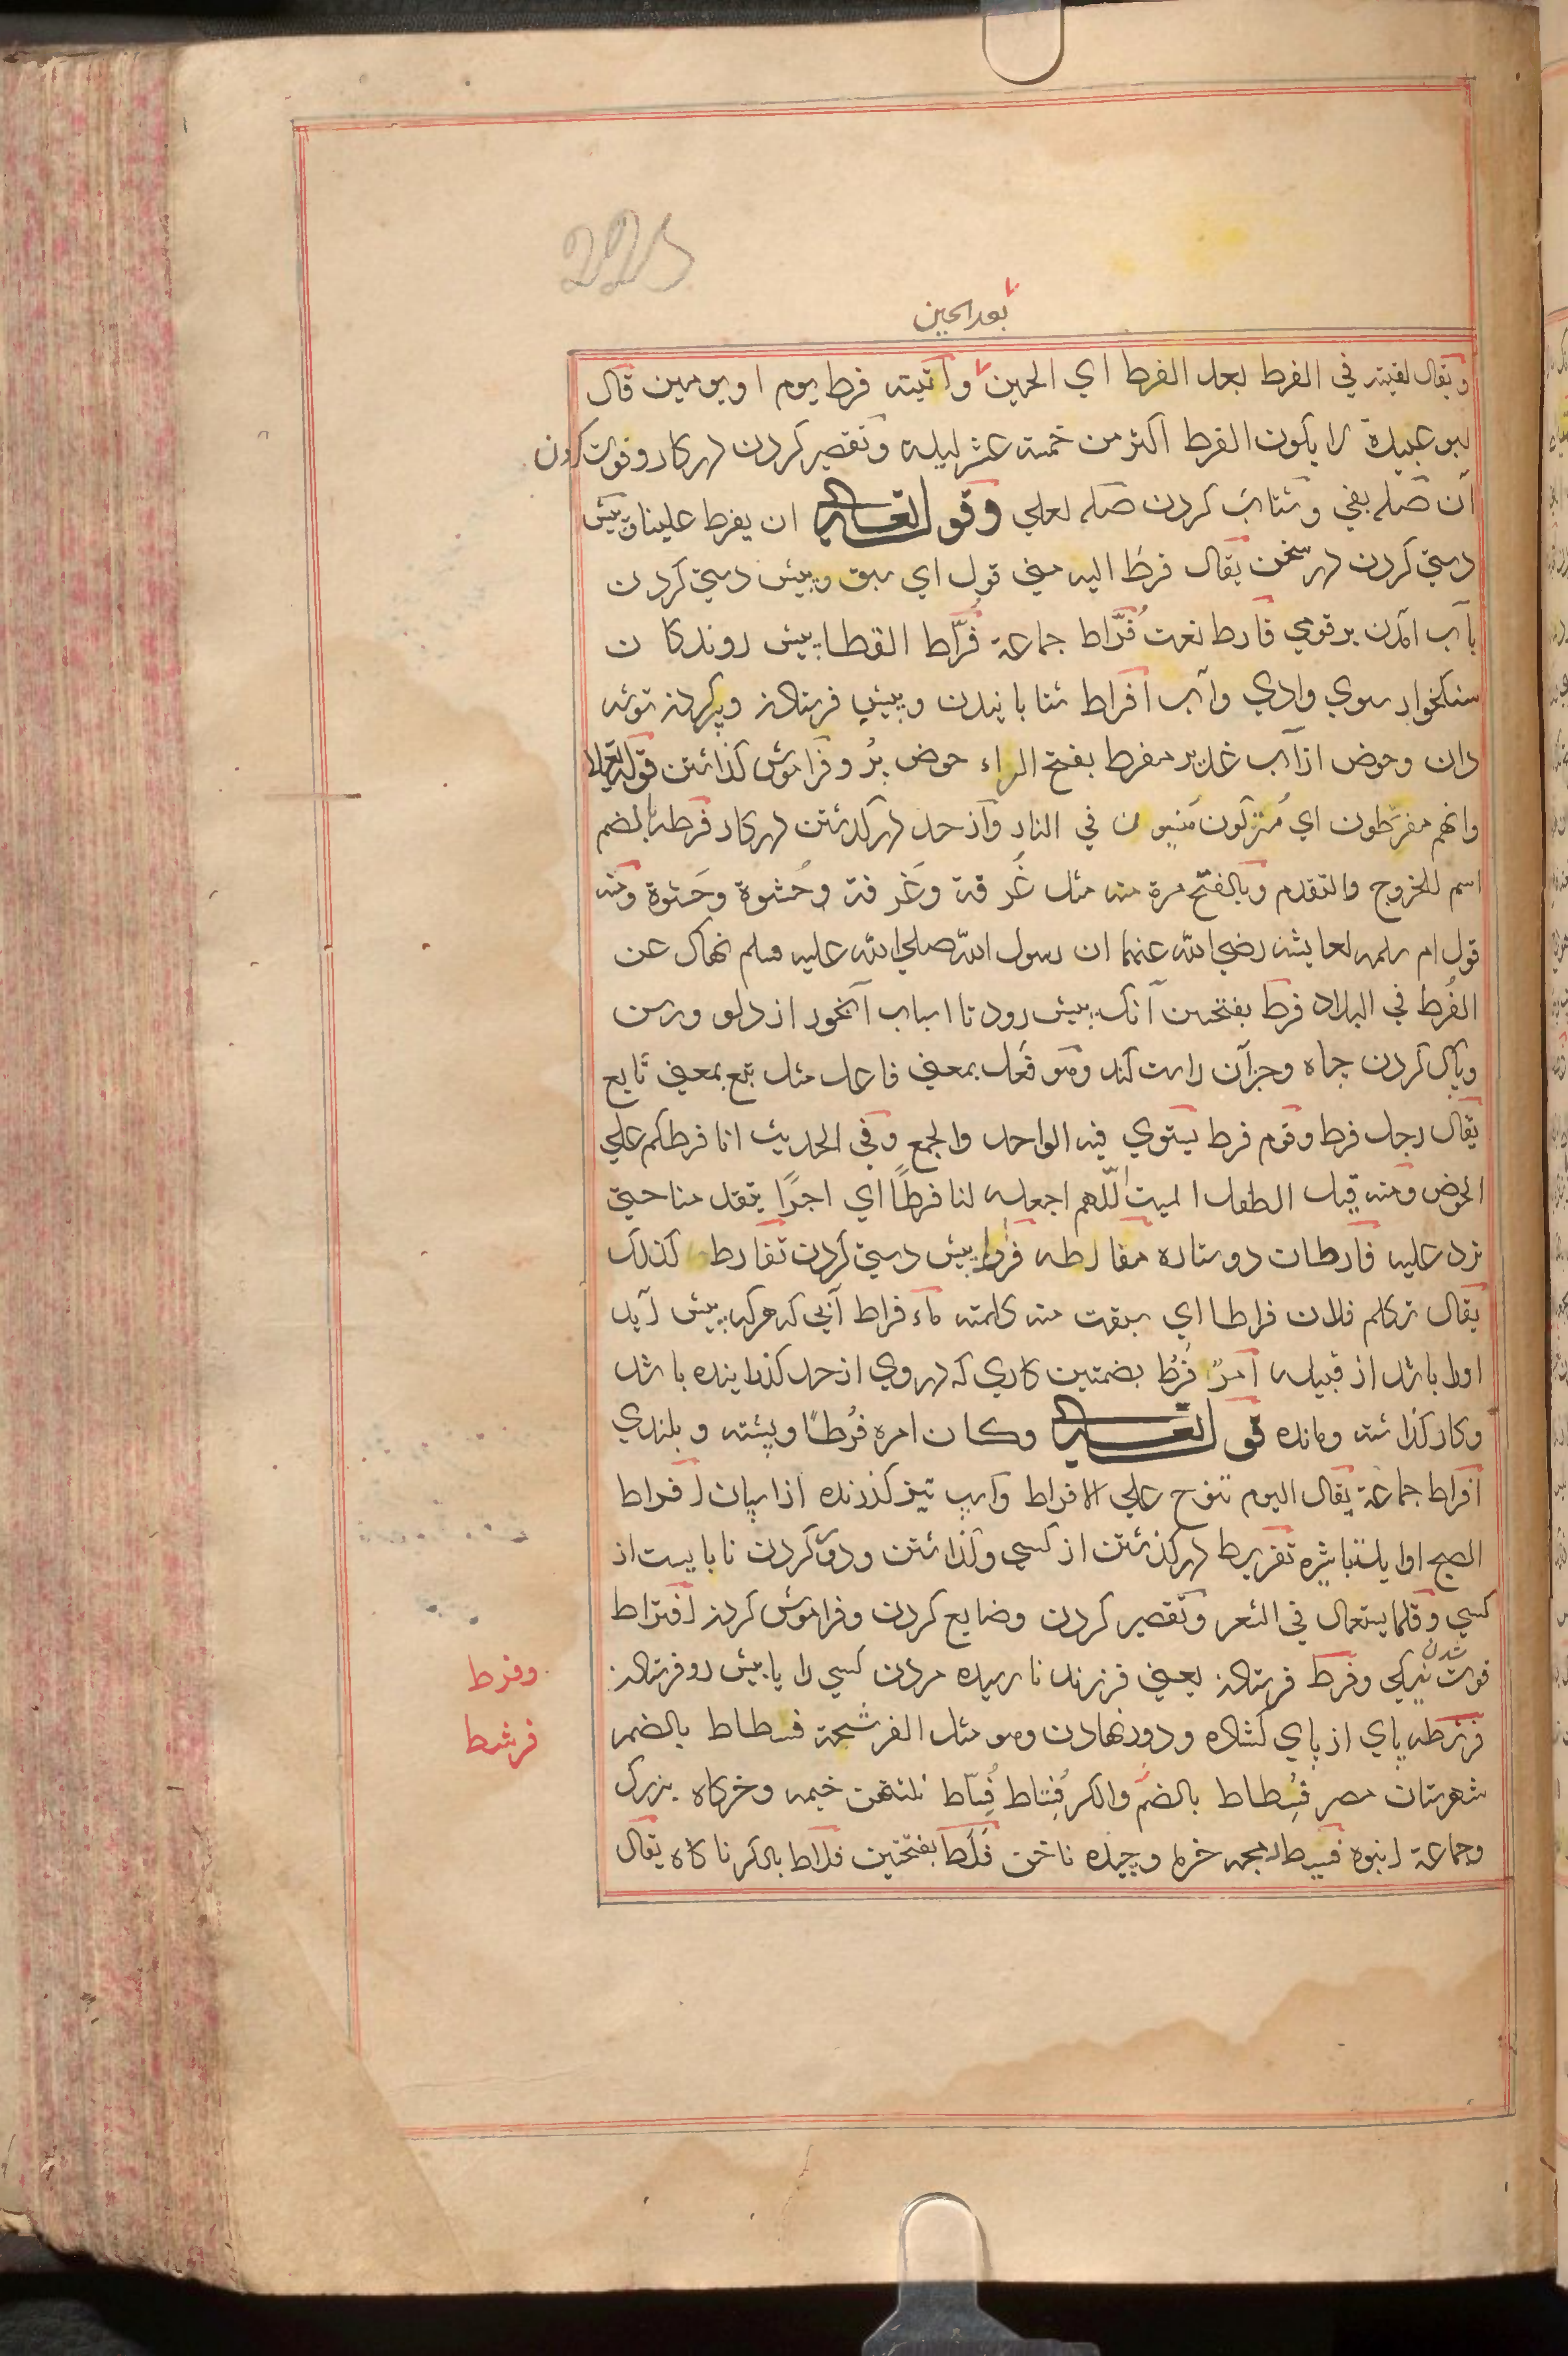 225
بعد الحين
ويقال لقيته في الفرط بعد الفرط اي الحين وآتيته فرط يوم او يومين قال
ابو عبيدة لا يكون الفرط اكثر من خمسة عشر ليلة وتقصير كردن در كار وفوت كردن
آن صلہ بفي وشتاب كردن صلہ بعلي وقوله تعالى ان يفرط علينا وپيش
دستي كردن در سخن يقال فرط اليه مني قول اي سبق وپيش دستي كردن
بآب آمدن بر قومي فارط نعت فُرَّاط جماعة فُرَّاط القطا پيش روندكان
سنكخوار سوي وادي وآب افراط شتابانيدن وپيش فرستادن وپر كردن توشه
دان وحوض از آب غدير مفرط بفتح الراء حوض پُر وفراموش كذاشتن قوله تعالى
وانهم مفرَطون اي مُتركون مَنسيون في النار وآز حد در كذشتن در كار فرطه بالضم
اسم للخروج والتقدم وبالفتح مرة منه مثل غُرفة وغَرفة وحُسْوة وحَسْوة ومنه
قول ام سلمه لعايشه رضي الله عنهما ان رسول الله صلى الله عليه وسلم نهاك عن
الفُرط في البلاد فرط بفتحتين آنك پيش رود تا اسباب آبخور از دلو ورسن
وپاك كردن چاه وجز آن راست كند وهو فَعَل بمعني فاعل مثل تبع بمعني تابع
يقال رجل فرط وقوم فرط يستوي فيه الواحد والجمع وفي الحديث انا فرطكم علي
الحوض ومنه قيل الطفل الميت اللّهم اجعله لنا فرطًا اي اجرًا يتقدمنا حتي
نرد عليه فارطان دو ستاره مفارطه فراط پيش دستي كردن تفارط كذلك
يقال تكلم فلان فراطا اي سبقت منه كلمته ماء فراط آبي كه هركه پيش آيد
اورا باشد از قبيله امرٌ فُرُط بضمتين كاري كه در وي از حد كذراينده باشد
وكار كذاشته ومانده قوله تعالى وكان امره فُرُطًا وپشته وبلندي
افراط جماعة يقال البوم تنوح علي الافراط واسپ تيز كذرنده از اسپان افراط
الصبح اوايل تباشيره تفريط در كذشتن از كسي وكذاشتن ودور كردن نابايست از
كسي وقلما يستعمل في الشعر وتقصير كردن وضايع كردن وفراموش كردن افتراط
فوت شدن وفرط فرستادن يعني فرزند نارسيده مردن كسي را يا پيش رو فرستادن
وفرط
فرشطه پاي از پاي كشاده ودور نهادن وهو مثل الفرشحة فسطاط بالضم
فرشط
شهرستان مصر فُسِطاط بالضم والكسر فُستاط فُسّاط خيمه وخركاه بزرك
وجماعة انبوه فسيط دمچه خرما وچيده ناخن فَلَط بفتحتين فلاط بالكسر ناكاه يقال